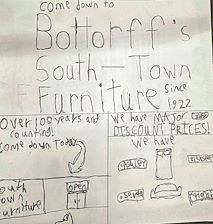 Come down to
Bottorff's
South-Town
Furniture since
1922
Over 100 years and
counting!
Come down Today
We have Major
DISCOUNT PRICES!
We have
open
South
Town
Furniture